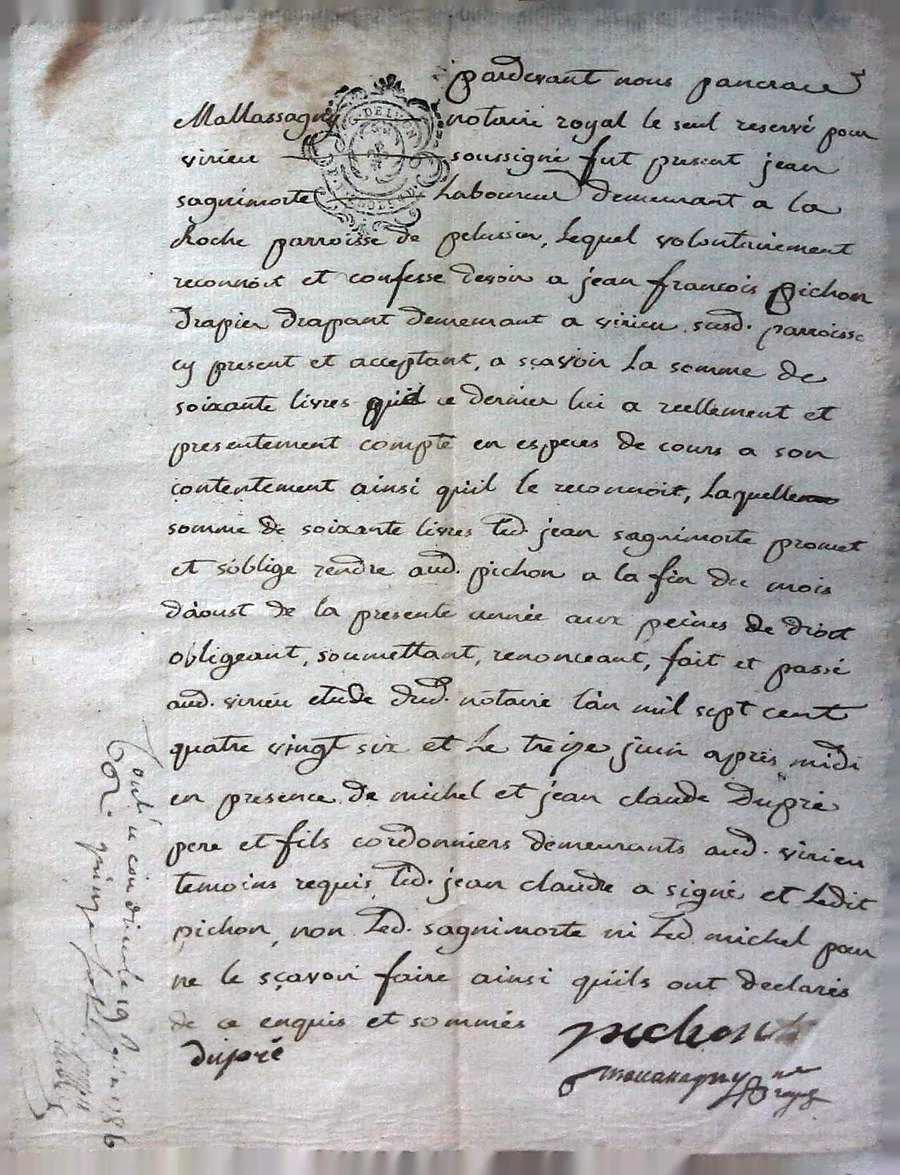 pardevant nous pancrace
Mallassagny notaire royal le seul reservé pour
virieu soussigné fut present jean
sagnimorte Laboureur demeurant a la
Roche parroisse de pelussin, Lequel volontairement
reconnoit et confesse devoir a jean francois pichon
drapier drapant demeurant a virieu susd. parroisse
cy present et acceptant, a sçavoir La somme de
soixante livres que ce dernier lui a reellement et
presentement compté en especes de cours a son
contentement ainsi qu'il le reconnoit, Laquelle
somme de soixante livres led. jean sagnimorte promet
et s'oblige rendre aud. pichon a la fin du mois
d'aoust de la presente année aux peines de droit
obligeant, soumettant, renonceant, fait et passé
aud. virieu etude dud. notaire l'an mil sept cent
quatre vingt six et Le treize juin après midi
en presence de michel et jean claude Dupré
pere et fils cordonniers demeurants aud. virieu
temoins requis, led. jean claude a signé et Ledit
pichon, non Led. sagnimorte ni Led. michel pour
ne le sçavoir faire ainsi qu'ils ont declarés
de ce enquis et sommés
pichon
dupré
Mallassagny nre
royal
Cont.lé a condrieu le 19 juin 1786
Ror. quinze sols